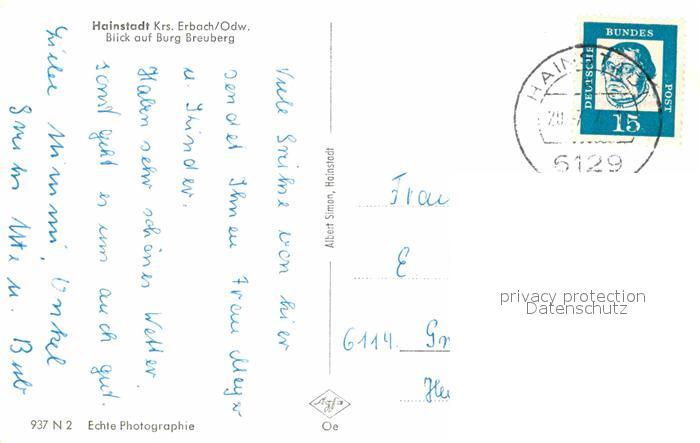 Hainstadt Krs. Erbach/Odw.
Blick auf Burg Breuberg
Viele Grüße von hier
sendet Ihnen Frau Meyer
u. Kinder.
Haben sehr schönes Wetter
sonst geht es uns auch gut.
Liebe Mimmi, Onkel
Gruß Ute u. Bub
Albert Simon, Hainstadt
DEUTSCHE
BUNDES
POST
15
HAINSTADT
20.
6129
Frau
E
6114. Gr
privacy protection
Datenschutz
Agfa
937 N 2 Echte Photographie
Oe